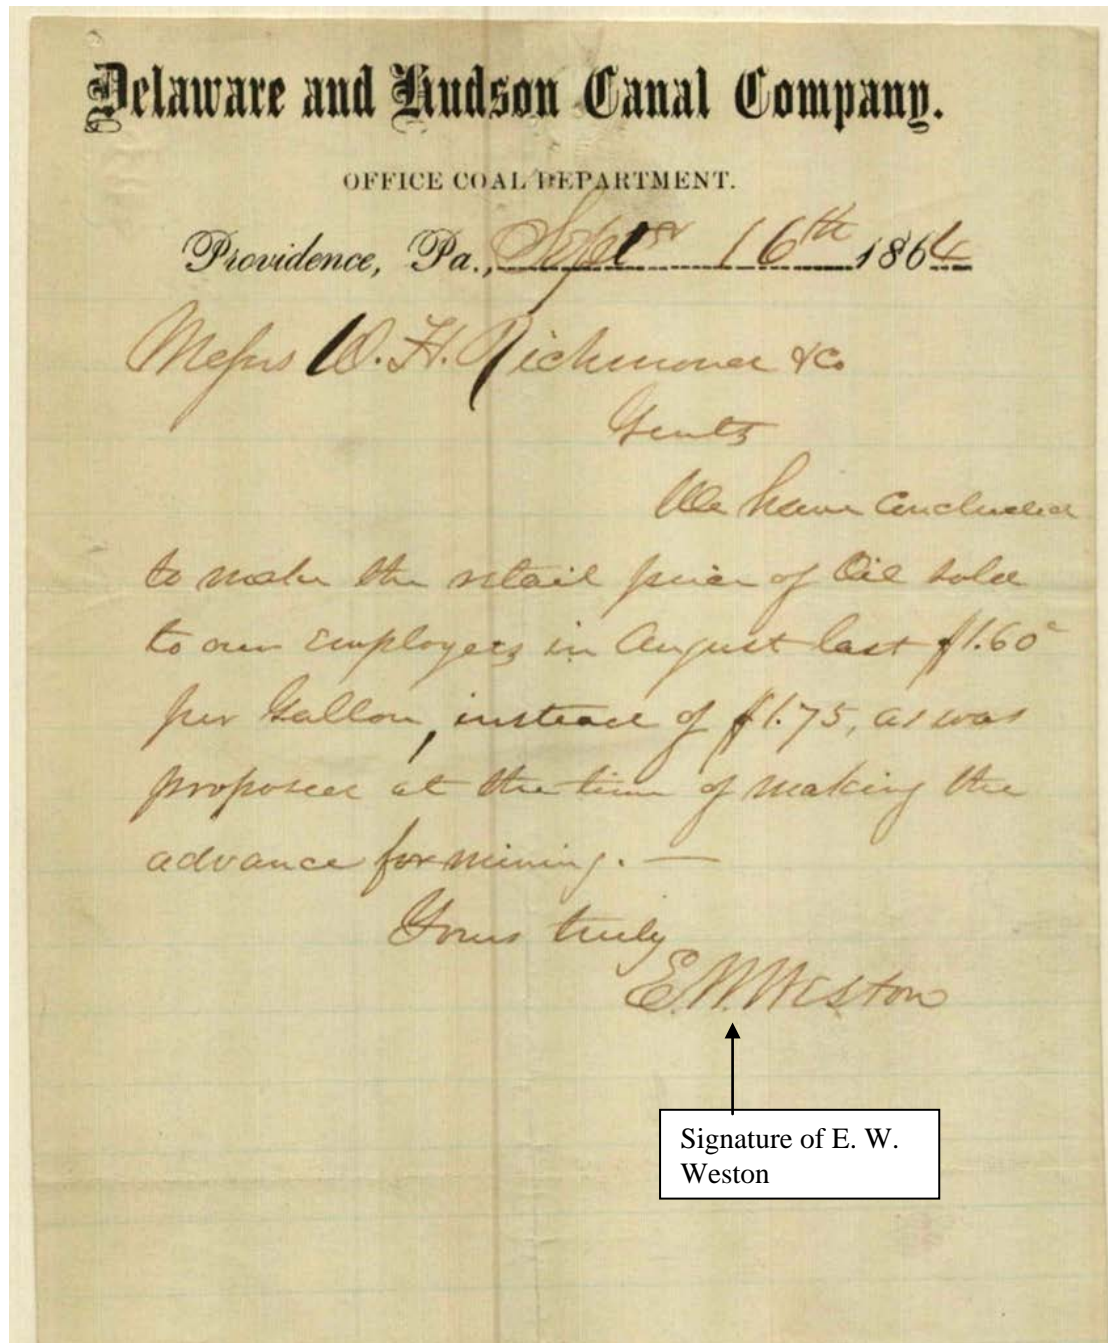 Delaware and Hudson Canal Company.
OFFICE COAL DEPARTMENT.
Providence, Pa., Septr 16th 1864
Messrs W. H. Richmond & Co
Gents
We have concluded
to make the retail price of Oil sold
to our Employees in August last $1.60c
per Gallon, instead of $1.75, as was
proposed at the time of making the
advance for mining. —
Yours truly
E. W. Weston
Signature of E. W.
Weston